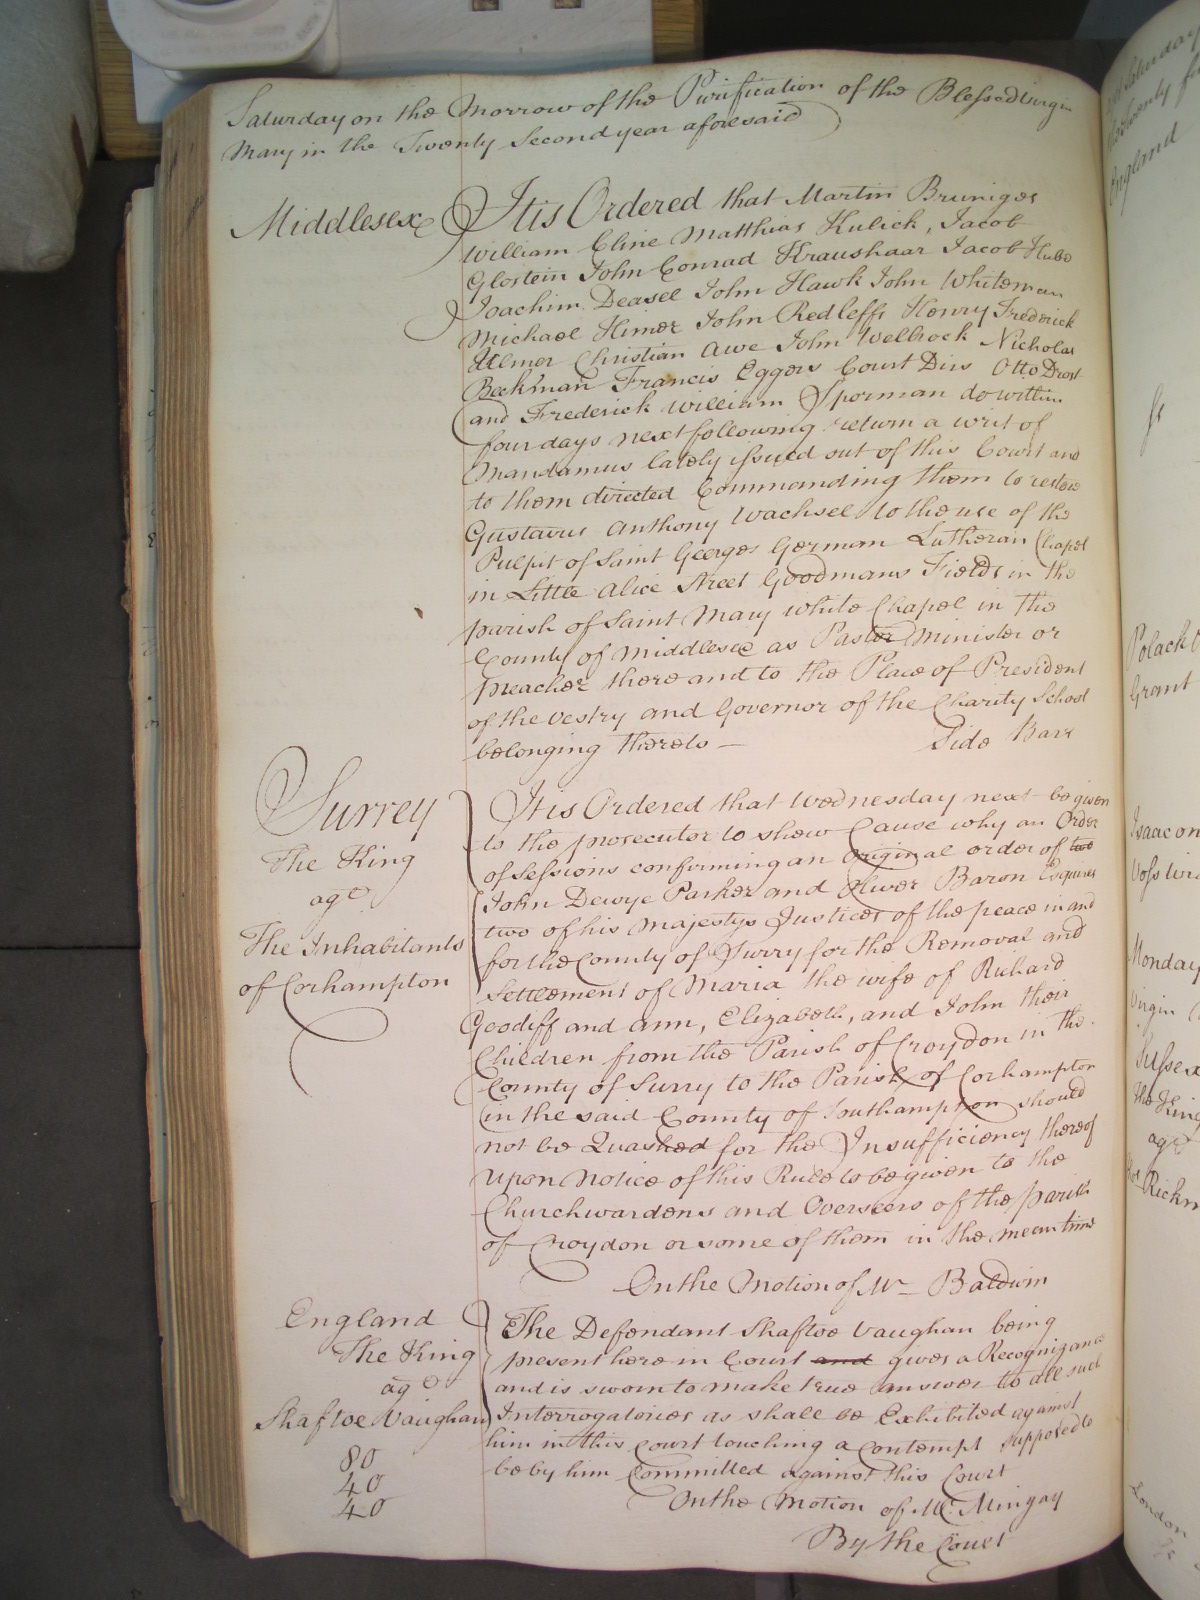 Saturday on the Morrow of the Purification of the Blessed Virgin
Mary in the Twenty Second year aforesaid
Middlesex
It is Ordered that Martin Bruniges
William Cline Matthias Kulick, Jacob
Glostein John Conrad Kraushaar Jacob Hube
Joachim Deasel John Hawk John Whiteman
Michael Himer John Redleffs Henry Frederick
Ulmer Christian Awe John Wellrock Nicholas
Beckman Francis Eggers Court Dirs Otto Drost
and Frederick William Sporman do within
four days next following return a writ of
Mandamus lately issued out of this Court and
to them directed Commanding them to restore
Gustavus Anthony Wachsel to the use of the
Pulpit of Saint Georges German Lutheran Chapel
in Little Alice Street Goodmans Fields in the
parish of Saint Mary white Chapel in the
County of Middlesex as Pastor Minister or
preacher there and to the Place of President
of the Vestry and Governor of the Charity School
belonging thereto —
Side Barr
Surrey
The King
agt
The Inhabitants
of Corhampton
It is Ordered that Wednesday next be given
to the prosecutor to shew Cause why an Order
of Sessions confirming an original order of two
John Dewye Parker and Oliver Baron Esquires
two of his Majestys Justices of the peace in and
for the County of Surry for the Removal and
Settlement of Maria the wife of Richard
Goodiff and Ann, Elizabeth, and John their
Children from the Parish of Croydon in the
County of Surry to the Parish of Corhampton
in the said County of Southampton should
not be Quashed for the Insufficiency thereof
upon Notice of this Rule to be given to the
Churchwardens and Overseers of the parish
of Croydon or some of them in the mean time
On the Motion of Mr Baldwin
England
The King
agt
Shaftoe Vaughan
80
40
40
The Defendant Shaftoe Vaughan being
present here in Court and gives a Recognizance
and is sworn to make true answer to all such
Interrogatories as shall be Exhibited against
him in this Court touching a Contempt supposed to
be by him Committed against this Court
On the Motion of Mr. Mingay
By the Court
England
Polack
Grant
Isaac
Monday
Virgin
Sussex
The King
agt
Richm
London